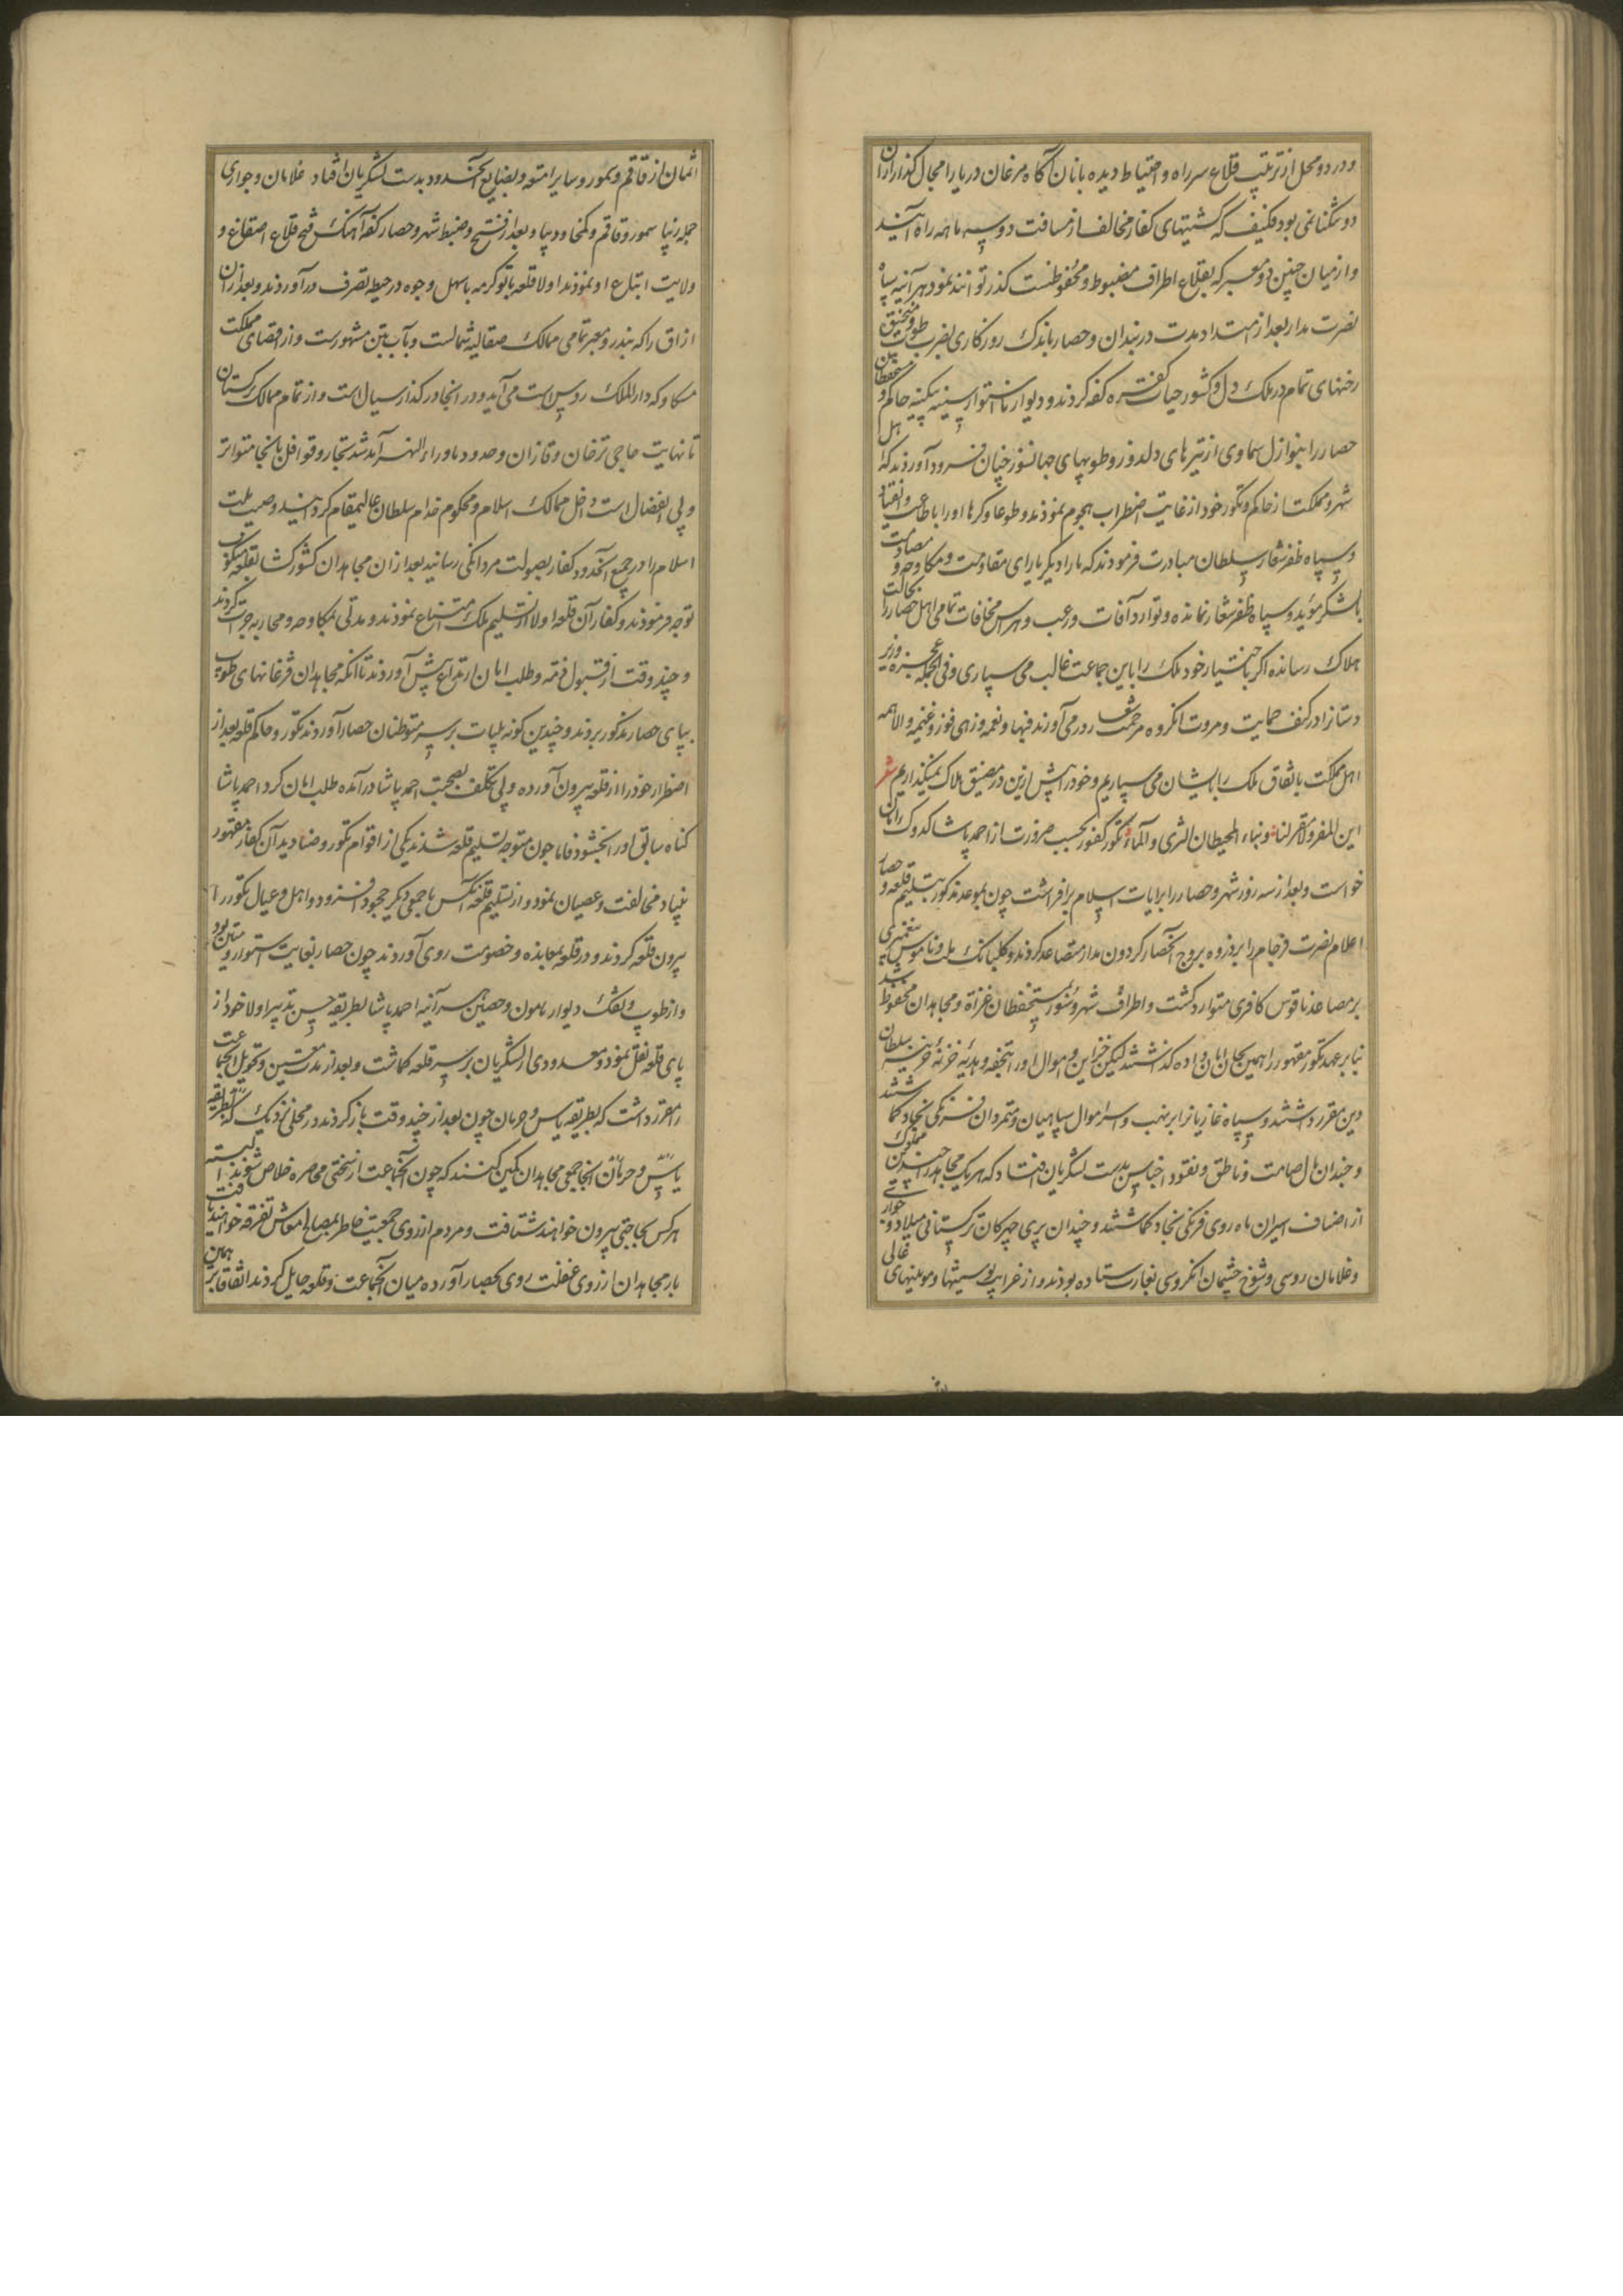 و در دو محل از ترتیب قلاع سر راه و احتیاط دیده بانان آگاه مرغان دریا را مجال گذار از آن
دو تنگنا نمی بود فکیف که کشتیهای کفار مخالف از مسافت دو سه ماهه راه آیند
و از میان چنین دو معبر که بقلاع اطراف مضبوط و محفوظست گذر توانند نمود هر آینه سپاه
نصرت مدار بعد از امتداد مدت در بندان و حصار باندک روزگاری بضرب طوب و منجنیق
رخنهای تمام در ملک دل و کشور حیات کفره کفه کردند و دیوار استوار سینه پر کینه حاکم و مستحفظان
حصار را بنوازل سماوی از تیرهای دلدوز و طوبهای جهانسوز چنان فرود آوردند که اهل
شهر و مملکت از حاکم و تکور خود از غایت اضطراب هجوم نمودند و طوعا و کرها او را باطاعت و انقیاد
و سپاه ظفر شعار سلطان مبادرت فرمودند که ما را دیگر یارای مقاومت و مکاوحه و مصادمت
بالشکر مؤید و سپاه ظفر شعار نمانده و توارد آفات و رعب و هراس مخافات تمامی اهل حصار را بحالت
هلاک رسانده اگر باختیار خود ملک را باین جماعت غالب می سپاری و فی الجمله عجزه و زیر
دستانرا در کنف حمایت و مروت آنگروه مرحمت شعار در می آورند فبها و نعمه و زهی فوز و غنیمه و الا همه
اهل مملکت باتفاق ملک را بایشان می سپاریم و خود را پیش ازین در مضیق هلاک نمیگذاریم شعر
این المفر و لا مفر لنا و بناء المحیطان الثری و الماء تکور کفور بحسب ضرورت از احمد پاشا کدوک امان
خواست و بعد از سه روز شهر و حصار را برایات اسلام برافراشت چون بموعد مذکور بتسلیم قلعه و حصار
اعلام نصرت فرجام را بر ذروه بروج آنحصار گردون مدار متصاعد کردند و گلبانگ ملت و ناموس پیغمبری
بر مصاعد ناقوس کافری متوارد گشت و اطراف شهر و سور بمستحفظان غزاة و مجاهدان محفوظ شد
بنا بر عهد تکور مقهور را همین بجان امان داده گذاشتند لیکن خزاین و اموال او را تحفه و هدیه خزانه خزینه سلطان
دین مقرر داشتند و سپاه غازیانرا بر نهب و اسر اموال سپاهیان و متمردان فرنگی نژاد گماشتند
و چندان مال صامت و ناطق و نقود و اجناس بدست لشکریان افتاد که هر یک مجاهد را چندین مملوک
از اصناف اسیران ماه روی فرنگی نژاد گماشتند و چندان پری چهرگان ترکستانی میلاد و جواری
و غلامان روسی و شوخ چشمان انگروسی بغارت ستاده بودند و از غرایب پوستینها و موینهای غالی
اثمان از قاقم و سمور و سایر امتعه و بضایع آنحدود بدست لشکریان افتاد غلامان و جواری
جمله زیبا سمور و قاقم و کمخا و دیبا و بعد از فتح و ضبط شهر و حصار کفه آهنگ فتح قلاع اصقاع و
ولایت اتباع او نمودند اولا قلعه یابوکرمه باسهل وجوه در حیطه تصرف در آوردند و بعد از آن
ازاق را که بندر و معبر تمامی ممالک صقالبه شمالست و بآب تن مشهورست و از اقصای مملکت
مسکاو که دار الملک روس است می آید و در آنجا در گذار سیال است و از تمام ممالک ترکستان
تا نهایت حاجی ترخان و قازان و حدود ماوراء النهر آمد شد تجار و قوافل بآنجا متواتر
و بی انفصال است داخل ممالک اسلام و محکوم خدام سلطان عالیمقام گردانیدند و صیت ملت
اسلام را در جمیع آنحدود کفار بصولت مردانگی رسانیدند بعد از آن مجاهدان کشور گشا بقلعه منکوب
توجه فرمودند و کفار آن قلعه اولا از تسلیم ملک امتناع نمودند و مدتی بمکاوحه و محاربه جرات کردند
و چند وقت از قبول ذمه و طلب امان ابتداع پیش آوردند تا آنکه مجاهدان فرغانهای طوب
بپای حصار مذکور بردند و چندین گونه بلیات بر سر متوطنان حصار آوردند تکور و حاکم قلعه بعد از
اضطرار خود را از قلعه بیرون آورده و بی تکلف بصحبت احمد پاشا در آمده طلب امان کرد احمد پاشا
گناه سابق او را بخشود فاما چون متوجه تسلیم قلعه شدند یکی از اقوام تکور و صنادید آن کفار مقهور
بنیاد مخالفت و عصیان نمود و از تسلیم قلعه آنکس با جمعی دیگر جحود فزود و اهل و عیال تکور را
بیرون قلعه کردند و در قلعه بمعانده و خصومت روی آوردند چون حصار بغایت استوار و متین بود
و از طوب و تفنگ دیوار مامون و حصین هر آینه احمد پاشا بطریقه حسن تدبیر اولا خود از
پای قلعه نقل نمود و معدودی از لشکریان بر سر قلعه گماشت و بعد از مدت معین و تحویل آنجماعت
را مقرر داشت که بطریقه یاس و حرمان چون بعد از چند وقت باز گردند در محلی نزدیک که بطریقه
یاس و حرمان آنجا جمعی مجاهدان کمین کنند که چون آنجماعت از سختی محاصره خلاص شوند البته
هر کس بحاجتی بیرون خواهند شتافت و مردم از روی جمعیت خاطر بمصالح معاش تفرقه خواهند یافت
بار مجاهدان از روی غفلت روی بحصار آورده میان آنجماعت و قلعه حایل گردند اتفاقا بر همان